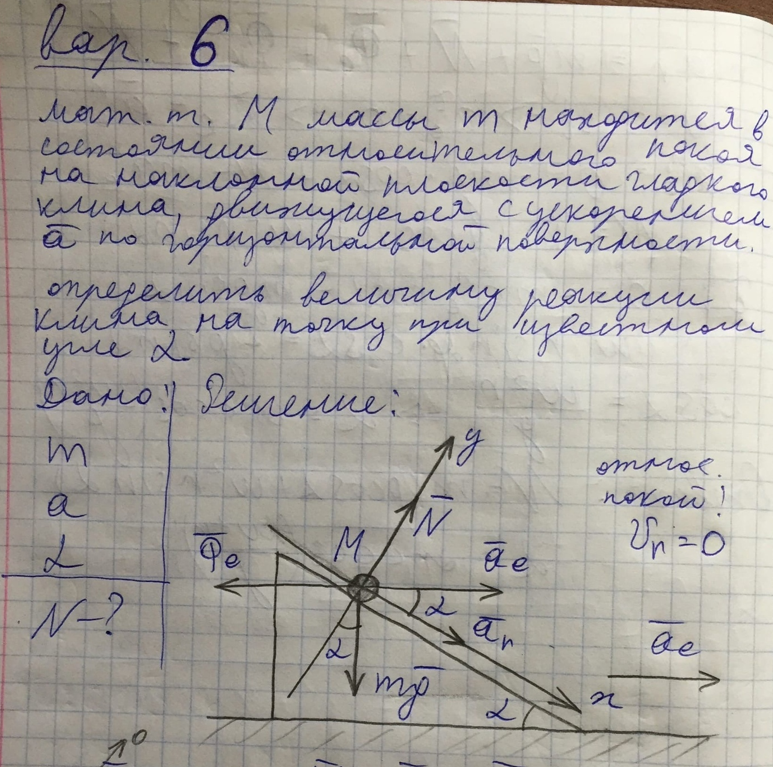 Вар. 6
мат. т. М массы m находится в
состоянии относительного покоя
на наклонной плоскости гладкого
клина, движущегося с ускорением
a̅ по горизонтальной поверхности.
определить величину реакции
клина на точку при известном
угле α
Дано: Решение:
m
a
α
N-?
y
N̅
относ.
покой!
Vr = 0
Φ̅e
M
a̅e
α
a̅r
α
mg̅
a̅e
x
α
1°